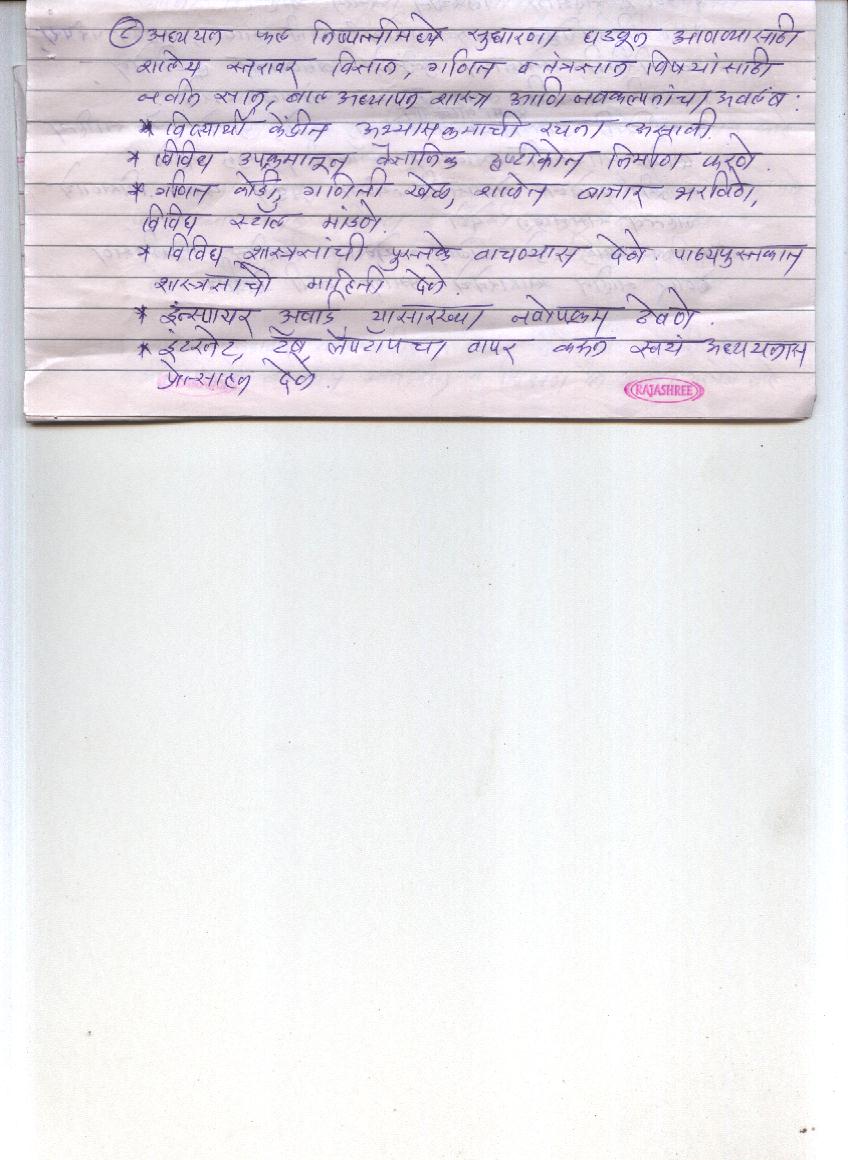 ८ अध्ययन फल निष्पत्तीमध्ये सुधारणा घडवून आणण्यासाठी
शालेय स्तरावर विज्ञान, गणित व तंत्रज्ञान विषयांसाठी
नवीन ज्ञान, बाल अध्यापन शास्त्र आणि नवकल्पनांचा अवलंब:
* विद्यार्थी केंद्रीत अभ्यासक्रमाची रचना असावी.
* विविध उपक्रमातून वैज्ञानिक दृष्टीकोन निर्माण करणे.
* गणित कोडी, गणिती खेळ, शाळेत बाजार भरविणे,
विविध स्टॉल मांडणे.
* विविध शास्त्रज्ञांची पुस्तके वाचण्यास देणे. पाठ्यपुस्तकात
शास्त्रज्ञांची माहिती देणे.
* इन्स्पायर अवार्ड यासारख्या नवोपक्रम ठेवणे.
* इंटरनेट, टॅब लॅपटॉपचा वापर करून स्वयं अध्ययनास
प्रोत्साहन देणे.
RAJASHREE